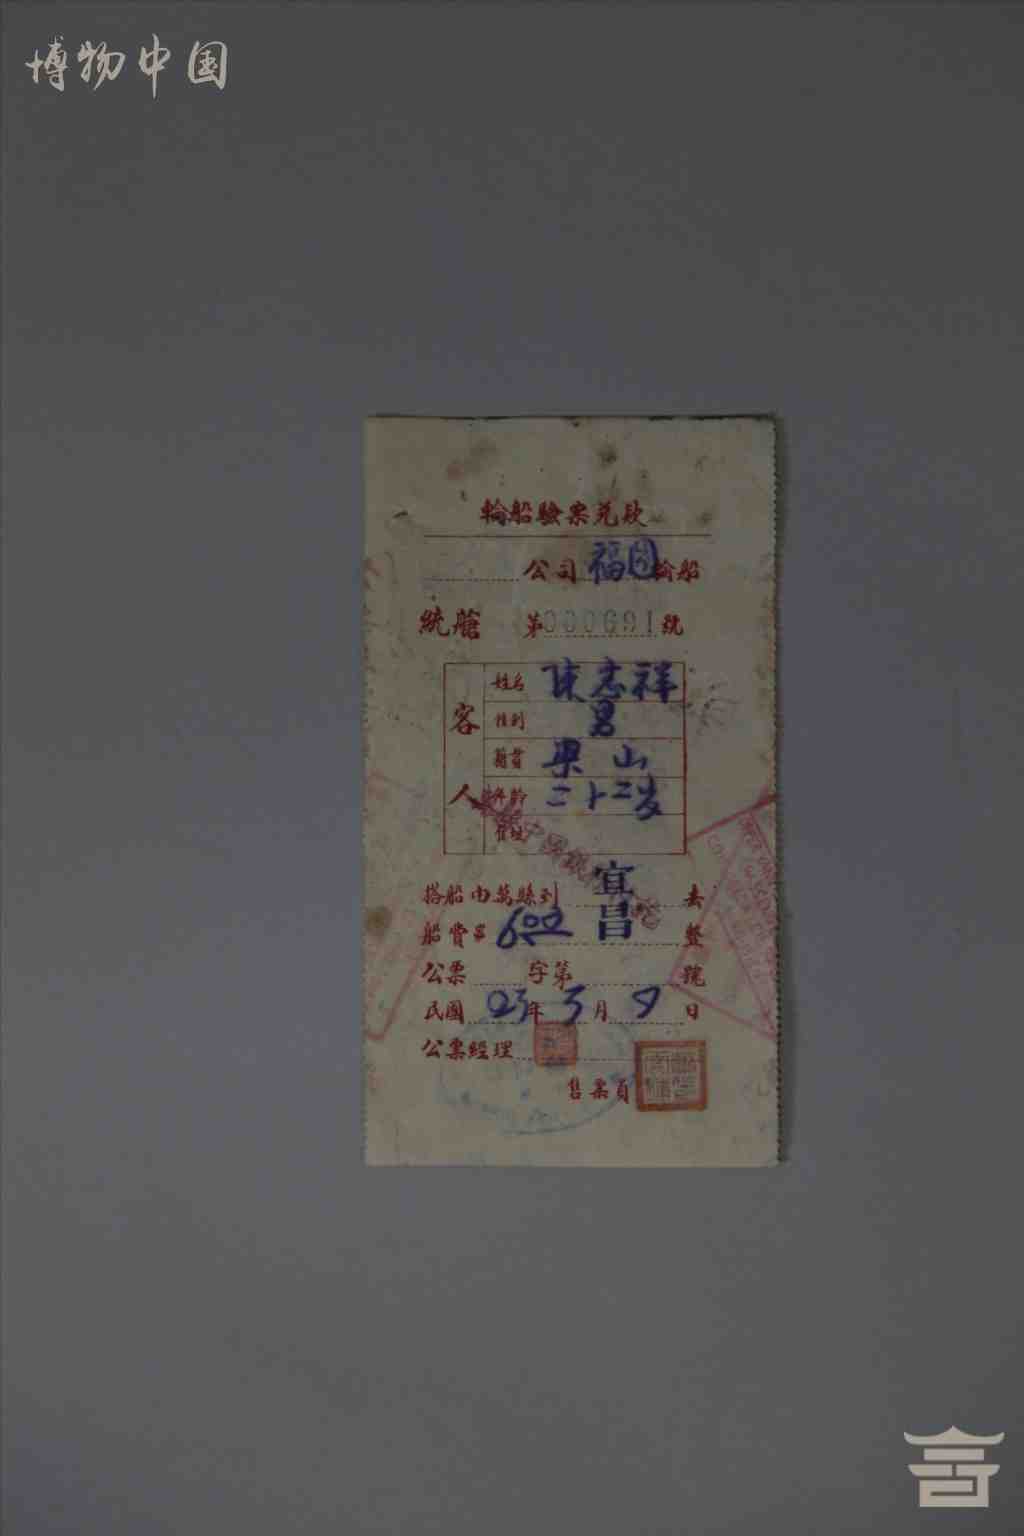 博物中国
輪船驗票兑欵
公司 福囙 輪船
統艙 第000691號
客人
姓名 陳志祥
性别 男
籍貫 梁山
年齡 二十二岁
住址
搭船由萬縣到 宜昌 去
船費 600 整
公票 字第 號
民國 23年 3月 日
公票經理
售票員